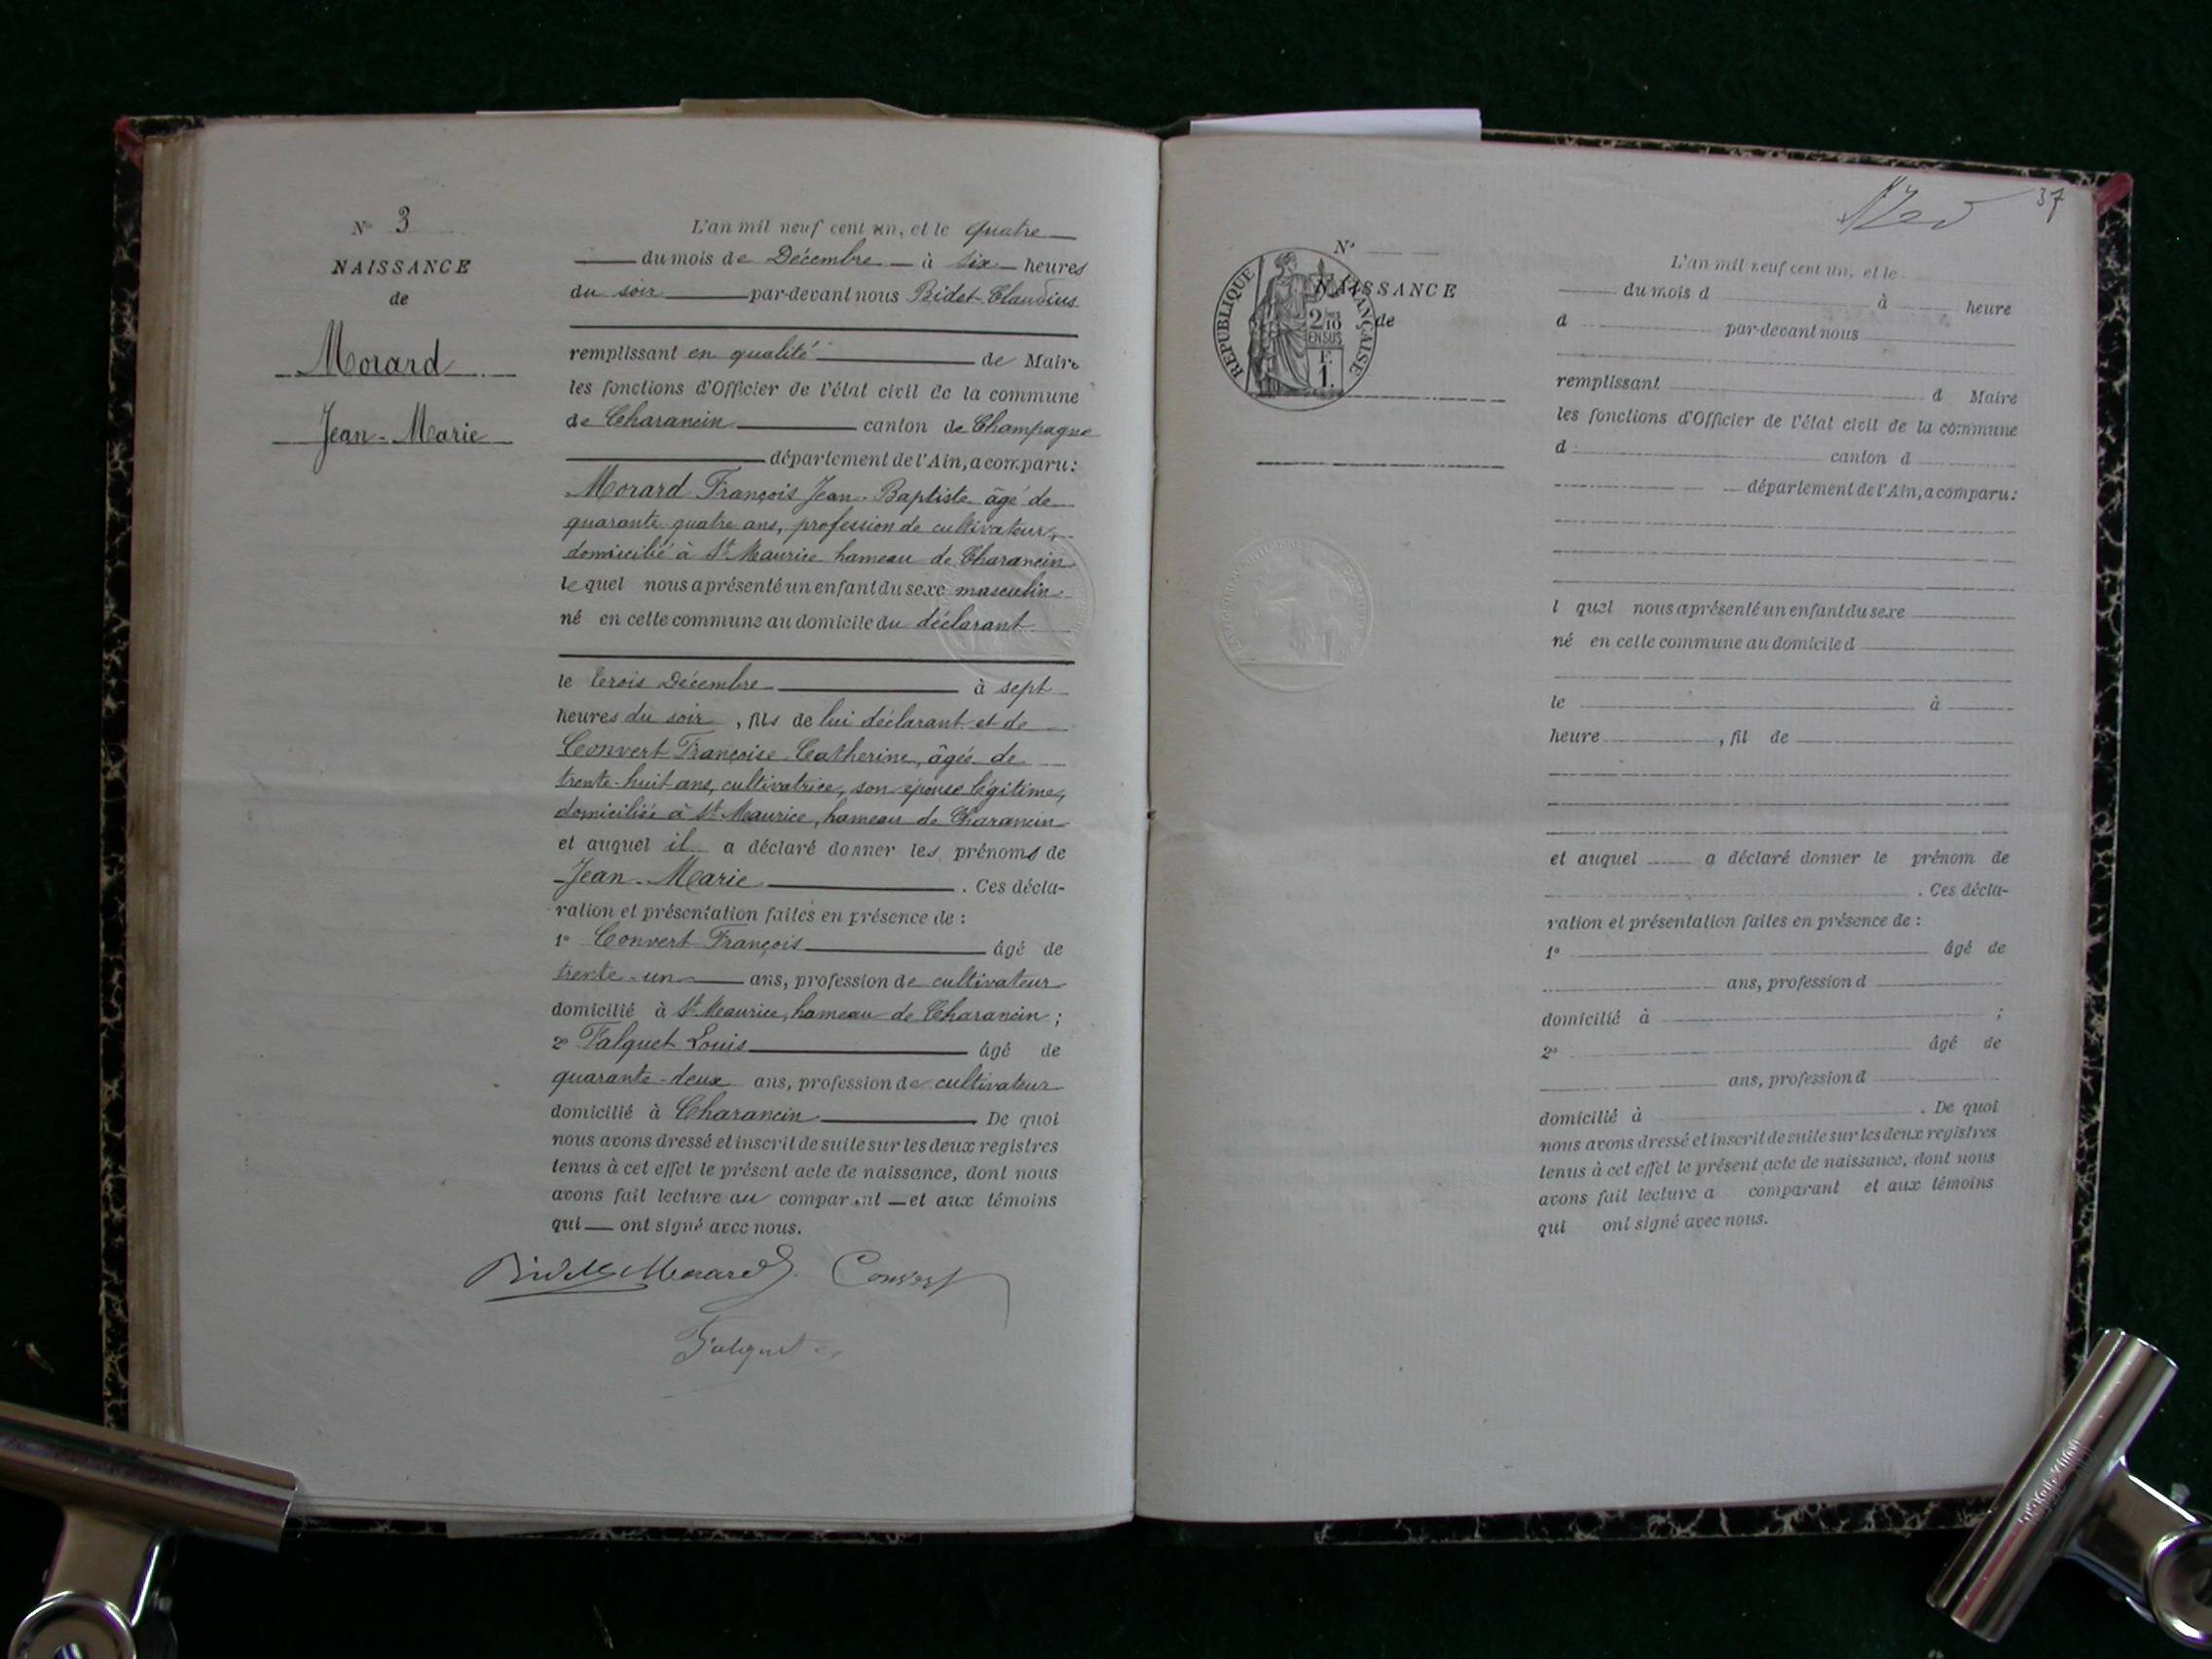 Nº 3
NAISSANCE
de
Morard
Jean-Marie
L'an mil neuf cent un, et le quatre
du mois de Décembre à six heures
du soir par-devant nous Bidet Claudius
remplissant en qualité de Maire
les fonctions d'Officier de l'état civil de la commune
de Charancin canton de Champagne
département de l'Ain, a comparu :
Morard François Jean-Baptiste âgé de
quarante quatre ans, profession de cultivateur,
domicilié à St Maurice hameau de Charancin
lequel nous a présenté un enfant du sexe masculin
né en cette commune au domicile du déclarant
le trois Décembre à sept
heures du soir, fils de lui déclarant et de
Convert Françoise Catherine, âgée de
trente-huit ans, cultivatrice, son épouse légitime,
domiciliée à St Maurice, hameau de Charancin
et auquel il a déclaré donner les prénoms de
Jean-Marie. Ces décla-
ration et présentation faites en présence de :
1º Convert François âgé de
trente-un ans, profession de cultivateur
domicilié à St Maurice, hameau de Charancin ;
2º Falquet Louis âgé de
quarante-deux ans, profession de cultivateur
domicilié à Charancin De quoi
nous avons dressé et inscrit de suite sur les deux registres
tenus à cet effet le présent acte de naissance, dont nous
avons fait lecture au comparant et aux témoins
qui ont signé avec nous.
Bidet Morard Convert
Falquet
37
Nº
NAISSANCE
de
REPUBLIQUE FRANÇAISE
2/10
EN SUS
F.
1.
L'an mil neuf cent un, et le
du mois d à heure
d par-devant nous
remplissant d Maire
les fonctions d'Officier de l'état civil de la commune
d canton d
département de l'Ain, a comparu :
l quel nous a présenté un enfant du sexe
né en cette commune au domicile d
le à
heure , fil de
et auquel a déclaré donner le prénom de
. Ces décla-
ration et présentation faites en présence de :
1º âgé de
ans, profession d
domicilié à ;
2º âgé de
ans, profession d
domicilié à . De quoi
nous avons dressé et inscrit de suite sur les deux registres
tenus à cet effet le présent acte de naissance, dont nous
avons fait lecture a comparant et aux témoins
qui ont signé avec nous.